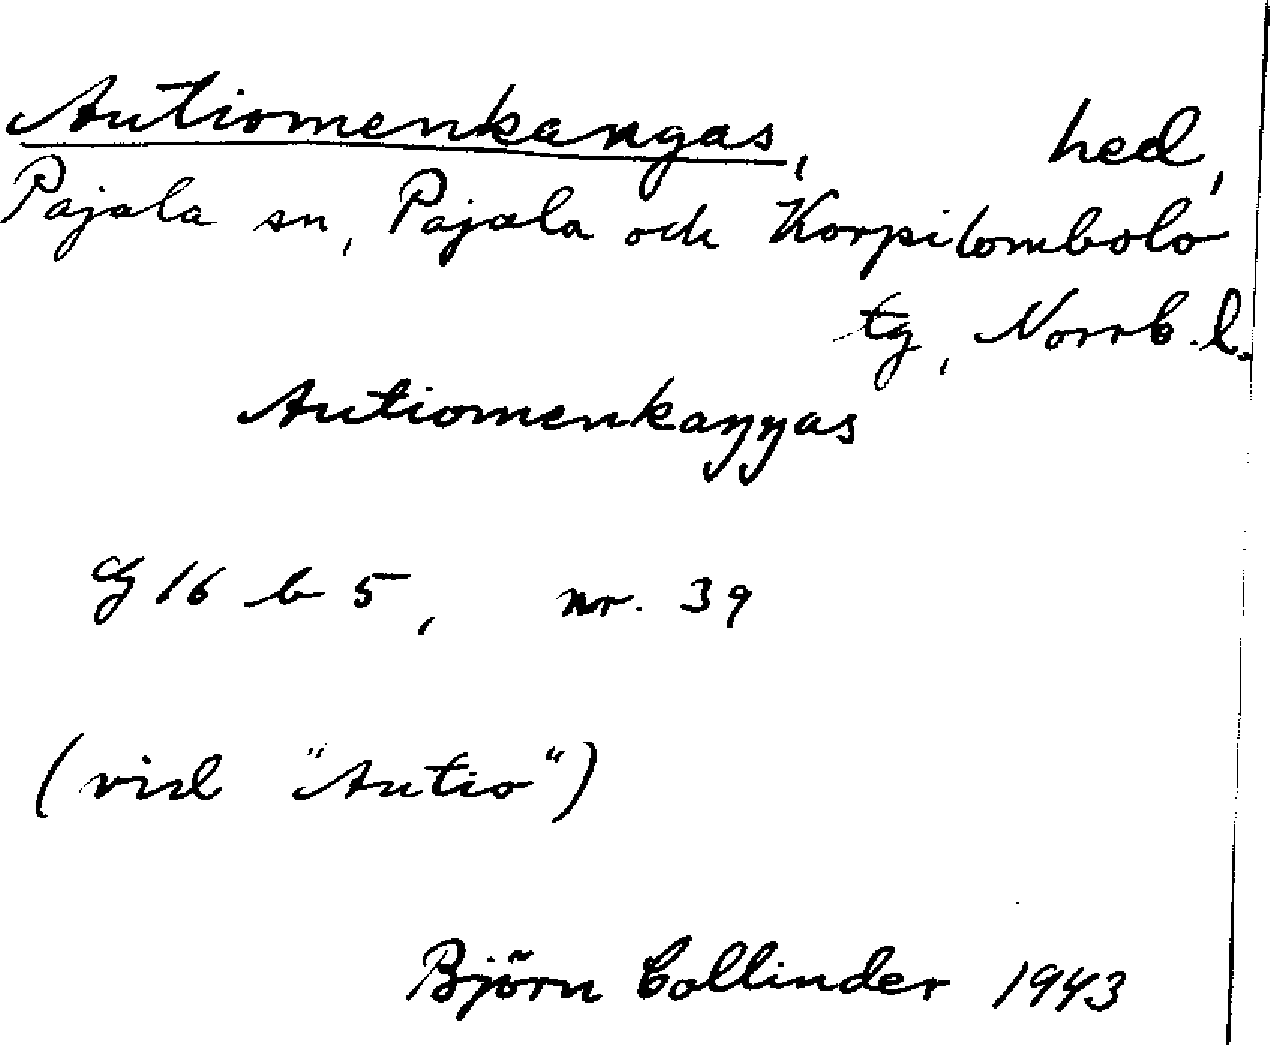 Autiomenkangas, hed,
Pajala sn, Pajala och Korpilombolo
tg, Norrb. l.
Autiomenkaŋŋas
G 16 b 5, nr. 39
(vid "Autio")
Björn Collinder 1943